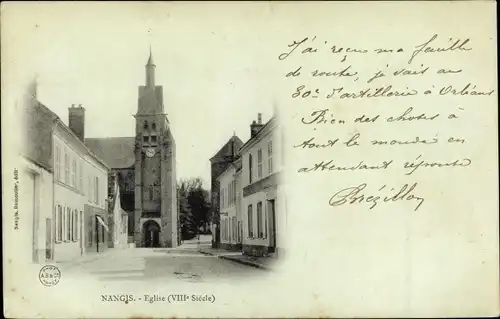 J'ai reçue ma feuille
de route, je sais au
30e d'artillerie à Orléans
Bien des choses à
tout le monde en
attendant réponse
Brézillon
Nangis, Desmolier, édit.
A.B.&C
NANGIS. - Eglise (VIIIe Siècle)